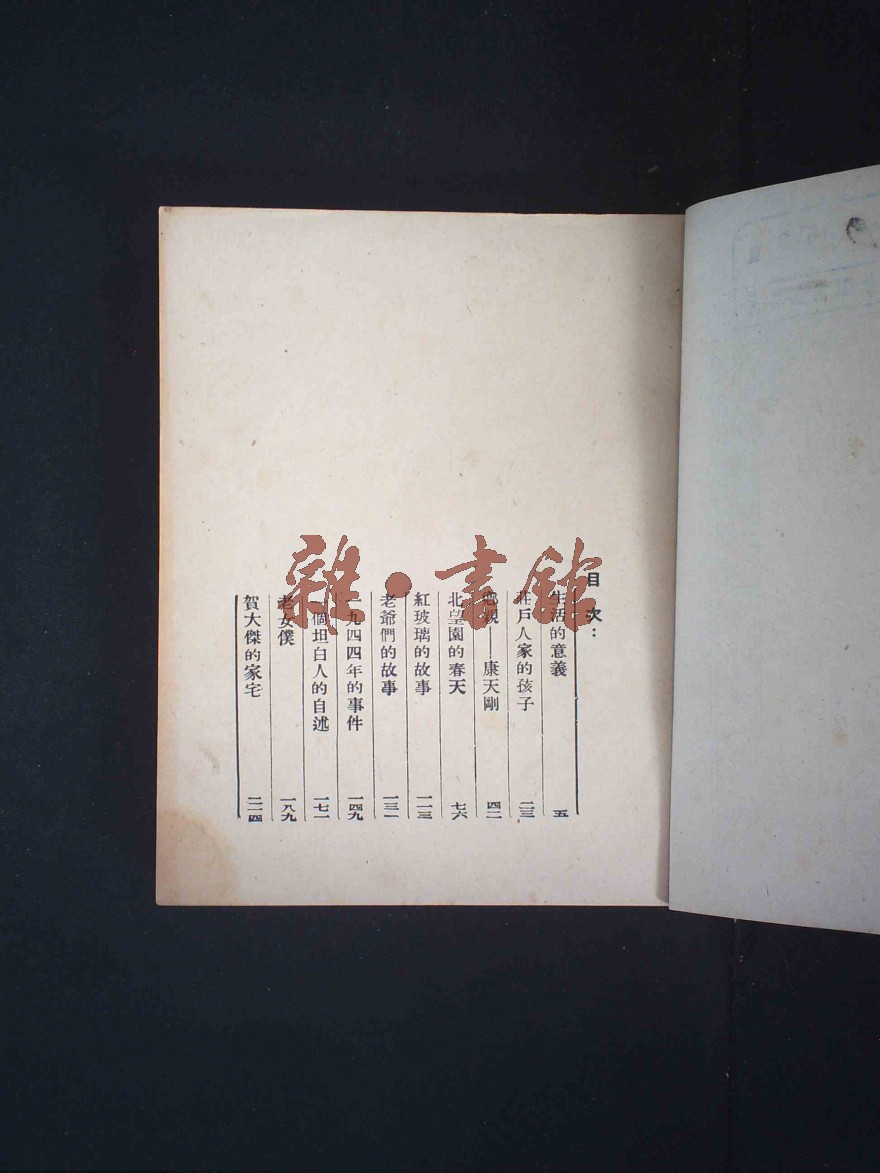 目次：
生活的意義 五
莊戶人家的孩子 二三
鄉親——康天剛 四二
北望園的春天 七六
紅玻璃的故事 一一三
老爺們的故事 一三一
一九四四年的事件 一四九
一個坦白人的自述 一七一
老女僕 一八九
賀大傑的家宅 二一四
雜·書館